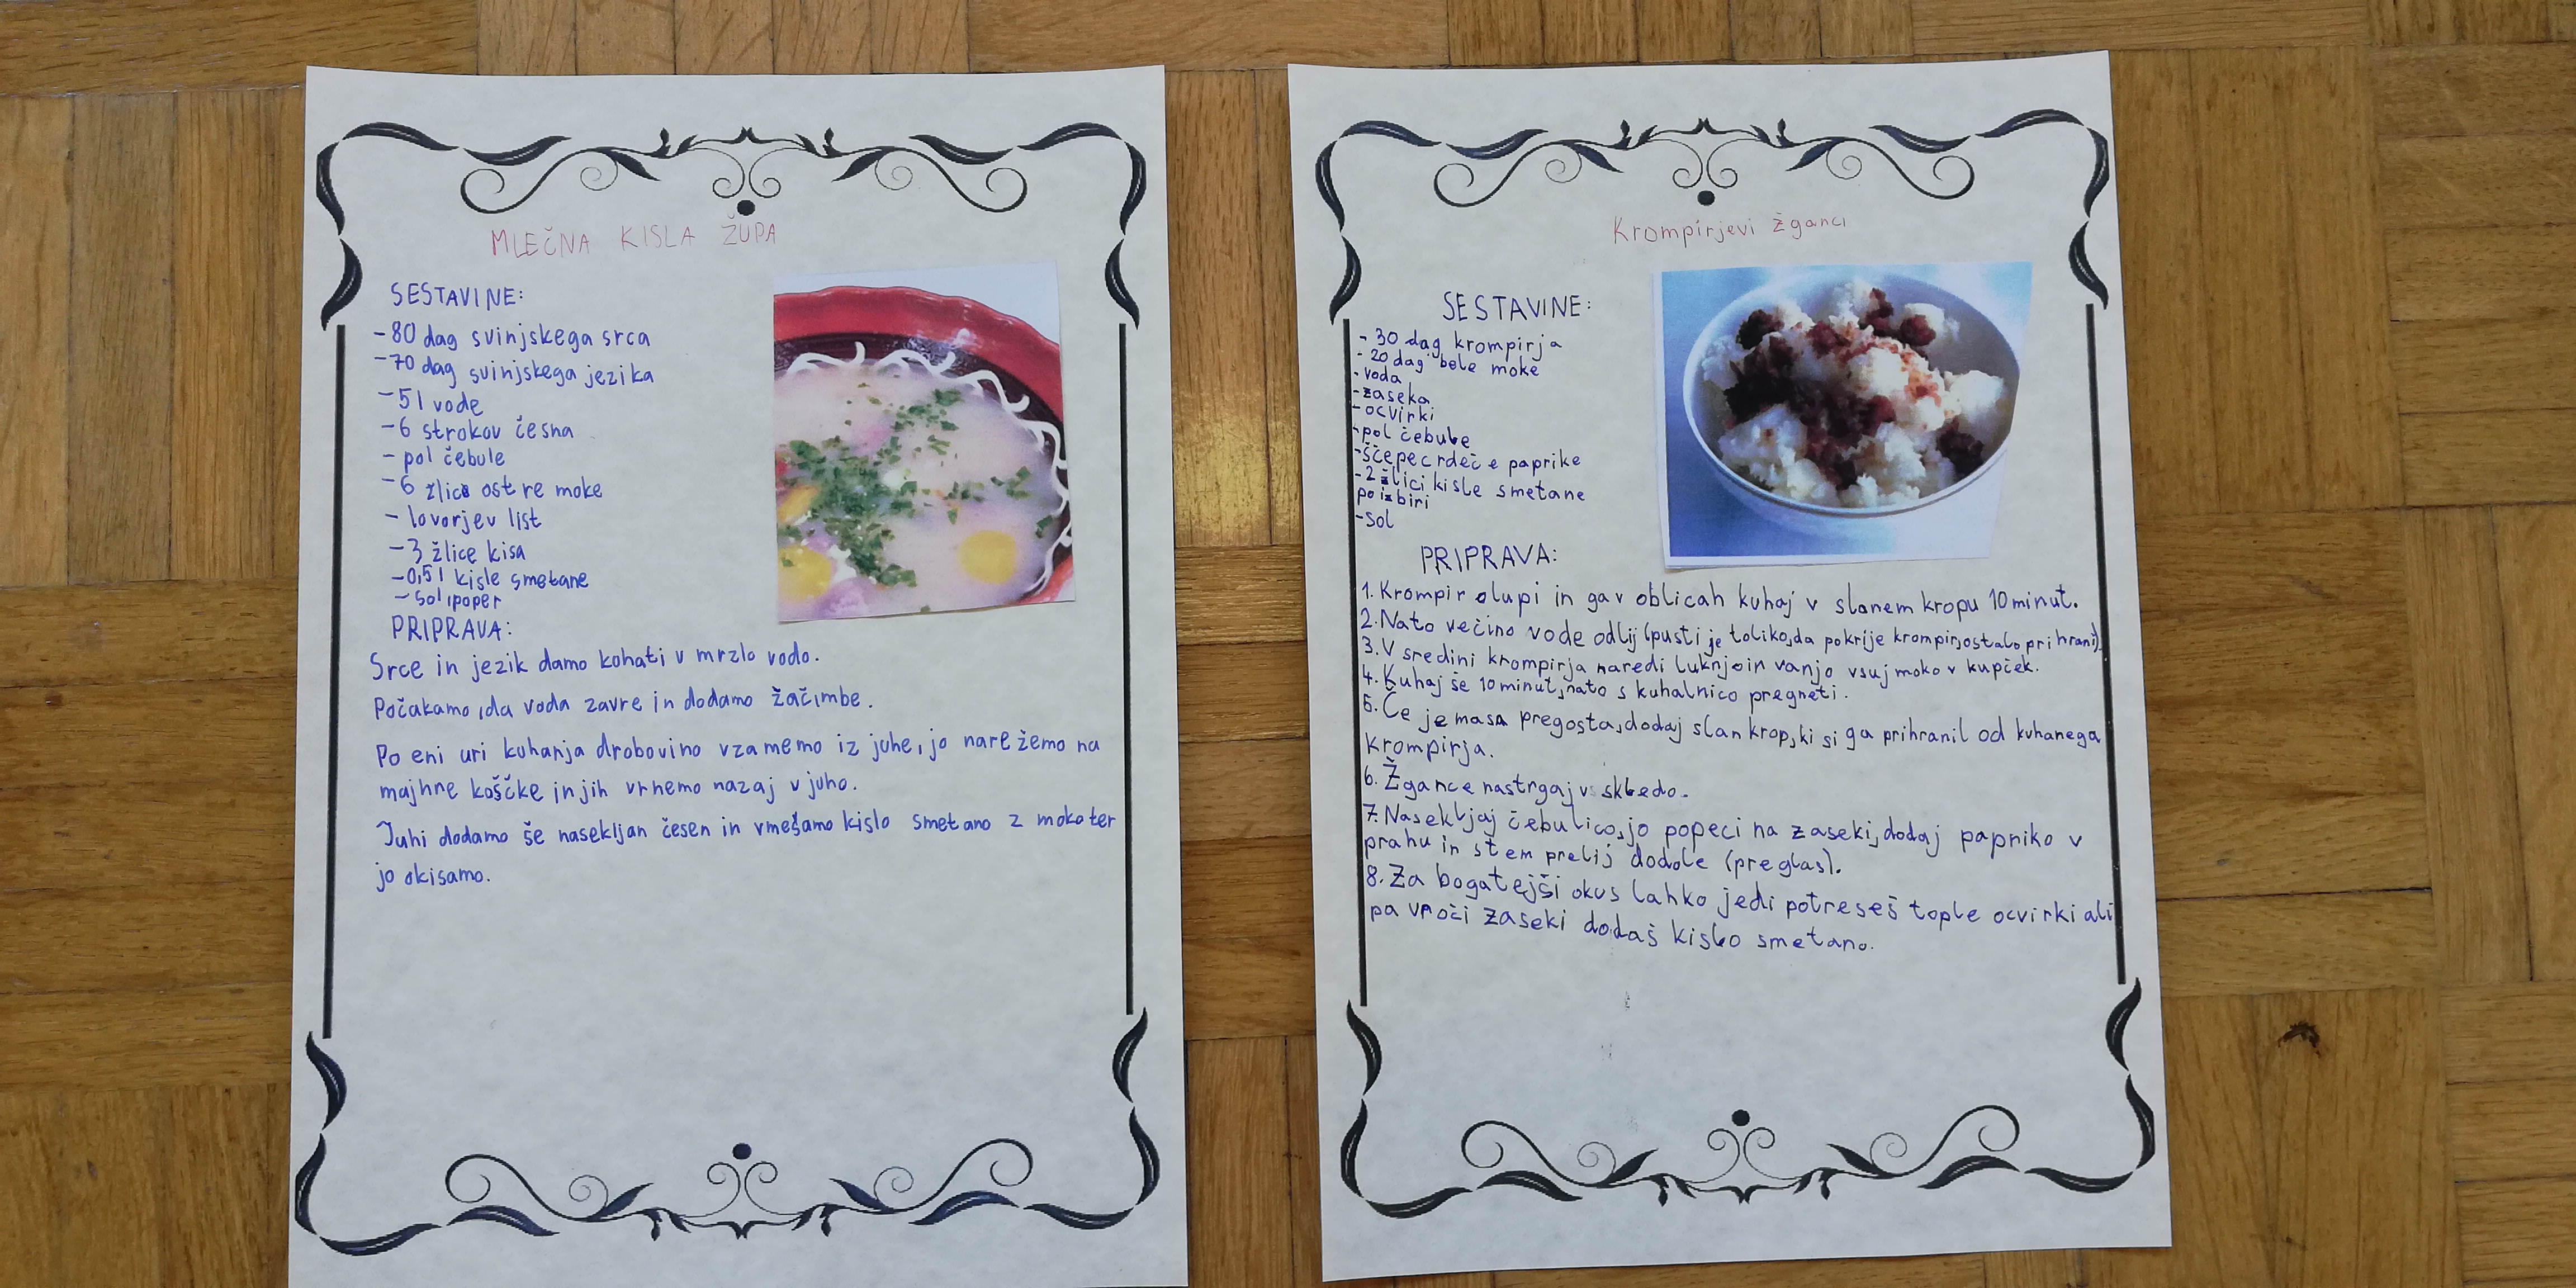 MLEČNA KISLA ŽUPA
SESTAVINE:
-80 dag svinjskega srca
-70 dag svinjskega jezika
-5l vode
-6 strokov česna
- pol čebule
-6 žlica ostre moke
- lovorjev list
-3 žlice kisa
-0,5l kisle smetane
- sol, poper
PRIPRAVA:
Srce in jezik damo kohati v mrzlo vodo.
Počakamo, da voda zavre in dodamo žačimbe.
Po eni uri kuhanja drobovino vzamemo iz juhe, jo narežemo na
majhne koščke in jih vrnemo nazaj v juho.
Juhi dodamo še nasekljan česen in vmešamo kislo smetano z moko ter
jo okisamo.
Krompirjevi žganci
SESTAVINE:
- 30 dag krompirja
- 20 dag bele moke
- voda
- zaseka
- ocvirki
- pol čebule
- ščepec rdeče paprike
- 2 žlici kisle smetane
po izbiri
- sol
PRIPRAVA:
1. Krompir olupi in ga v oblicah kuhaj v slanem kropu 10 minut.
2. Nato večino vode odlij (pusti je toliko, da pokrije krompir, ostalo pri hrani).
3. V sredini krompirja naredi luknjo in vanjo vsuj moko v kupček.
4. Kuhaj še 10 minut, nato s kuhalnico pregneti.
5. Če je masa pregosta, dodaj slan krop, ki si ga prihranil od kuhanega
krompirja.
6. Žgance nastrgaj v skledo.
7. Nasekljaj čebulico, jo popeci na zaseki, dodaj papriko v
prahu in s tem prelij dodole (preglas).
8. Za bogatejši okus lahko jedi potreseš tople ocvirki ali
pa vroči zaseki dodaš kislo smetano.